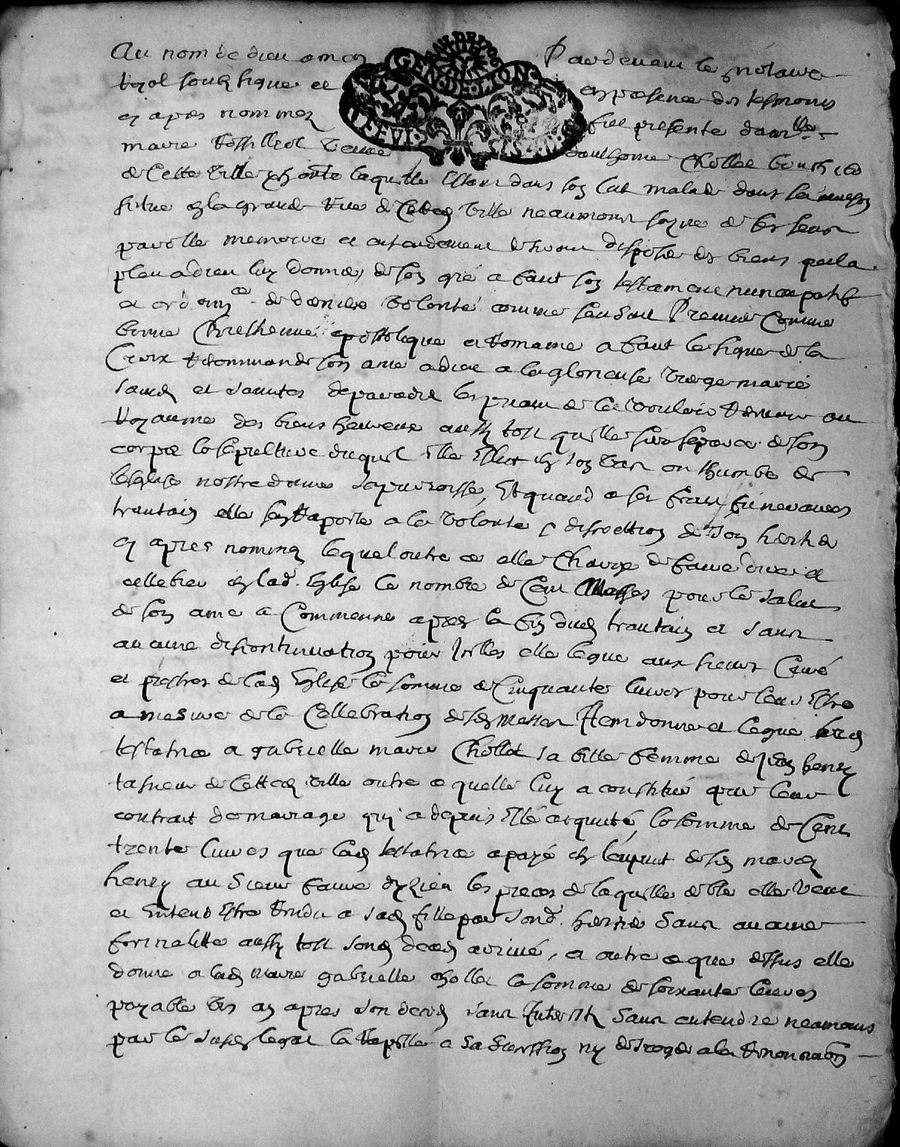 Au nom de dieu amen Pardevant le notaire
royal soubsigné et en presence des tesmoins
cy apres nommez fut presente dam.lle
marie vefve Anthoine Chollet bourgeois
de cette ville laquelle estant dans son lit malade dans sa maison
scitue en la grande rue de cette d. ville neaumoins sayne de ses sens
parolle memoire et entendement desirant disposer des biens qu'il a
pleu a dieu luy donner de son gré a faict son testament nuncupatif
et ord.on de derniere volonté comme sensuit Premier comme
bonne Chrestienne apostolique et romaine a faict le signe de la
Croix recommandé son ame a dieu a la glorieuse vierge marie
saincts et sainctes de paradis les priant de la vouloir recevoir au
royaume des biens heureux aussy tost qu'elle sera separée de son
corps la sepulture duquel elle eslit en son vas ou thumbe de
leglise nostre dame sa parroisse, Et quand a ses frais funeraires
trantain elle sen raporte a la volonté & discrettion de son heritier
cy apres nommé lequel outre ce elle charge de faire dire et
cellebrer en lad. Eglise le nombre de Cent Messes pour le salut
de son ame a Commencer apres la fin dud. trantain et sans
aucune discontinuation pour icelles elle legue aux sieurs Curé
et prestres de lad. Eglise la somme de Cinquante livres pour leur estre
a mesure de la Cellebration desd. messes Item donne et legue lad.
testatrice a gabrielle marie Chollet sa fille femme de Jean henry
tailleur de cette d. ville outre ce quelle luy a constitué par leur
contrat de mariage qui a depuis esté acquité, la somme de Cent
trente livres que lad. testatrice a payé en lacquit desd. mariez
henry au sieur faure les pieces de laquelle debte elle veut
et entend estre rendu a sad. fille par sond. heritier sans aucune
formalitte aussy tost sond. deceds arrivé, et outre ce que dessus elle
donne a lad. marie gabrielle chollet la somme de soixante livres
payable un an apres son deceds sans Interest Sans entendre neamoins
par le susd. legat la rapeller a sa succession ny deroger a la renonciation